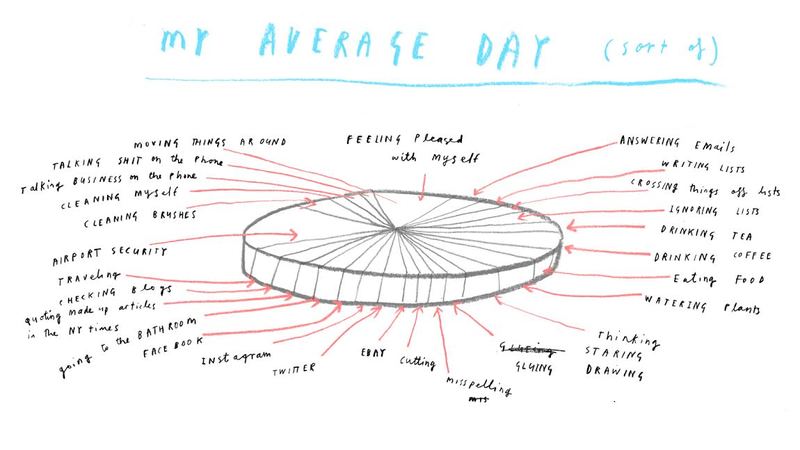 MY AVERAGE DAY (sort of)
MOVING THINGS AROUND
TALKING SHIT on the Phone
Talking BUSINESS on the Phone
CLEANING Myself
CLEANING BRUSHES
AIRPORT SECURITY
Traveling
CHECKING Blogs
quoting made up articles
in the NY times
going to the BATHROOM
FACEBOOK
Instagram
TWITTER
EBAY
Cutting
misspelling
mis
FEELING Pleased
with Myself
ANSWERING Emails
WRITING LISTS
CROSSING things off lists
IGNORING LISTS
DRINKING TEA
DRINKING COFFEE
Eating FOOD
WATERING Plants
Thinking
STARING
DRAWING
GLUEING
GLUING